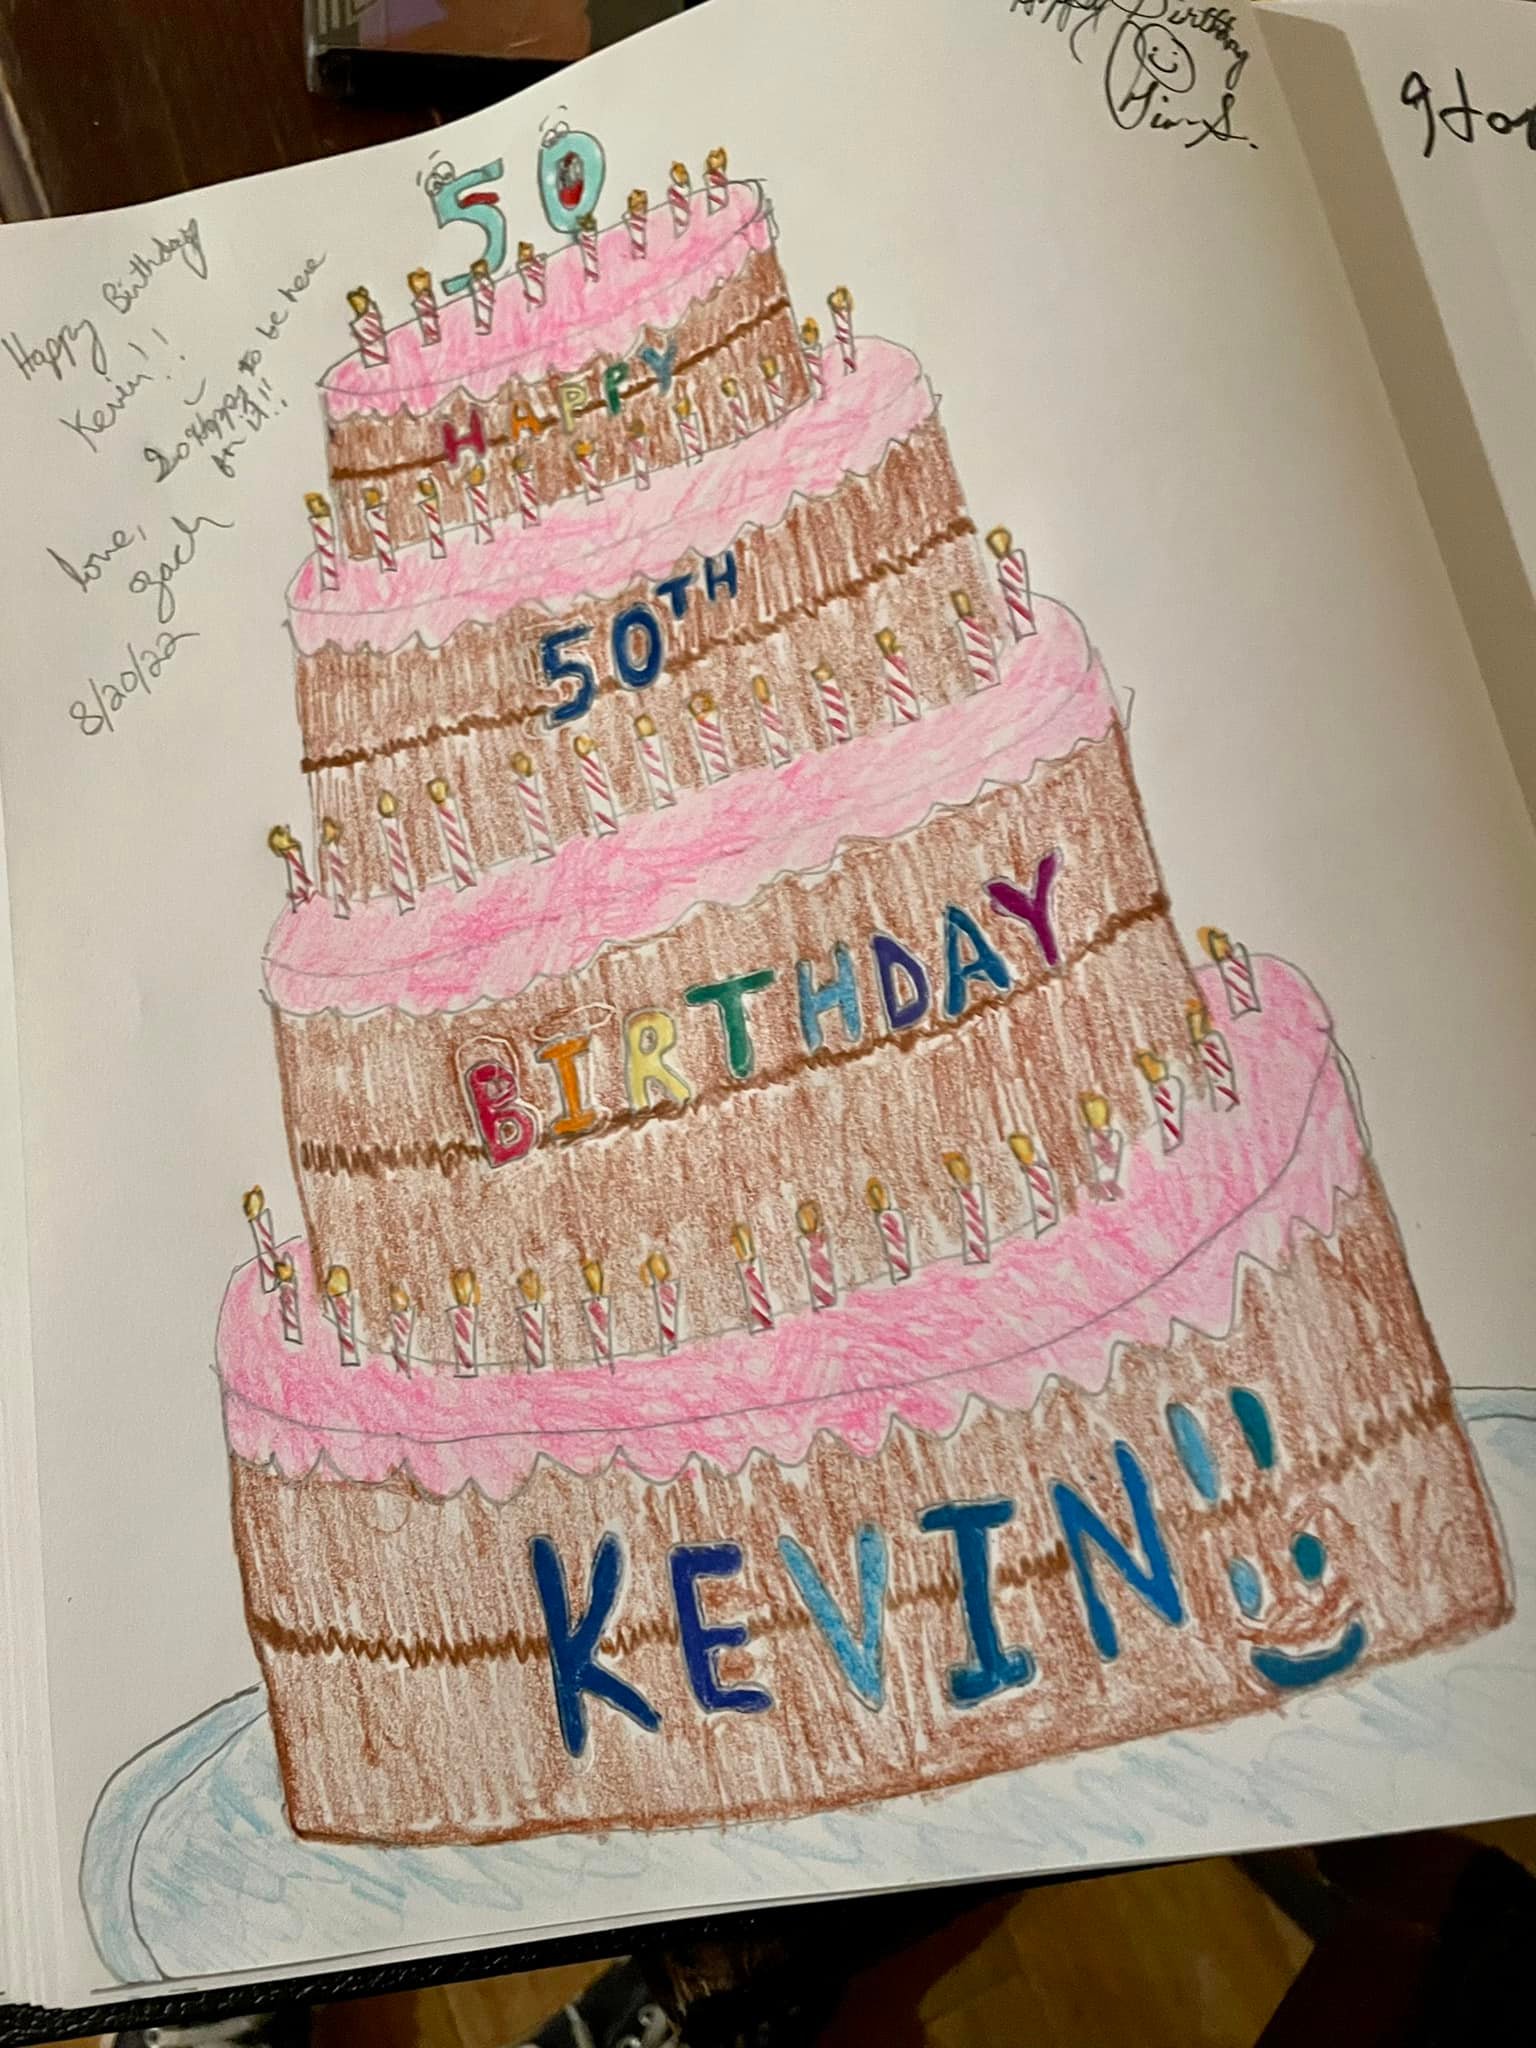 Happy Birthday
Kevin!!
So Happy to be here
for it!!
Love,
Zach
8/20/22
Happy Birthday
50
HAPPY
50TH
BIRTHDAY
KEVIN!!